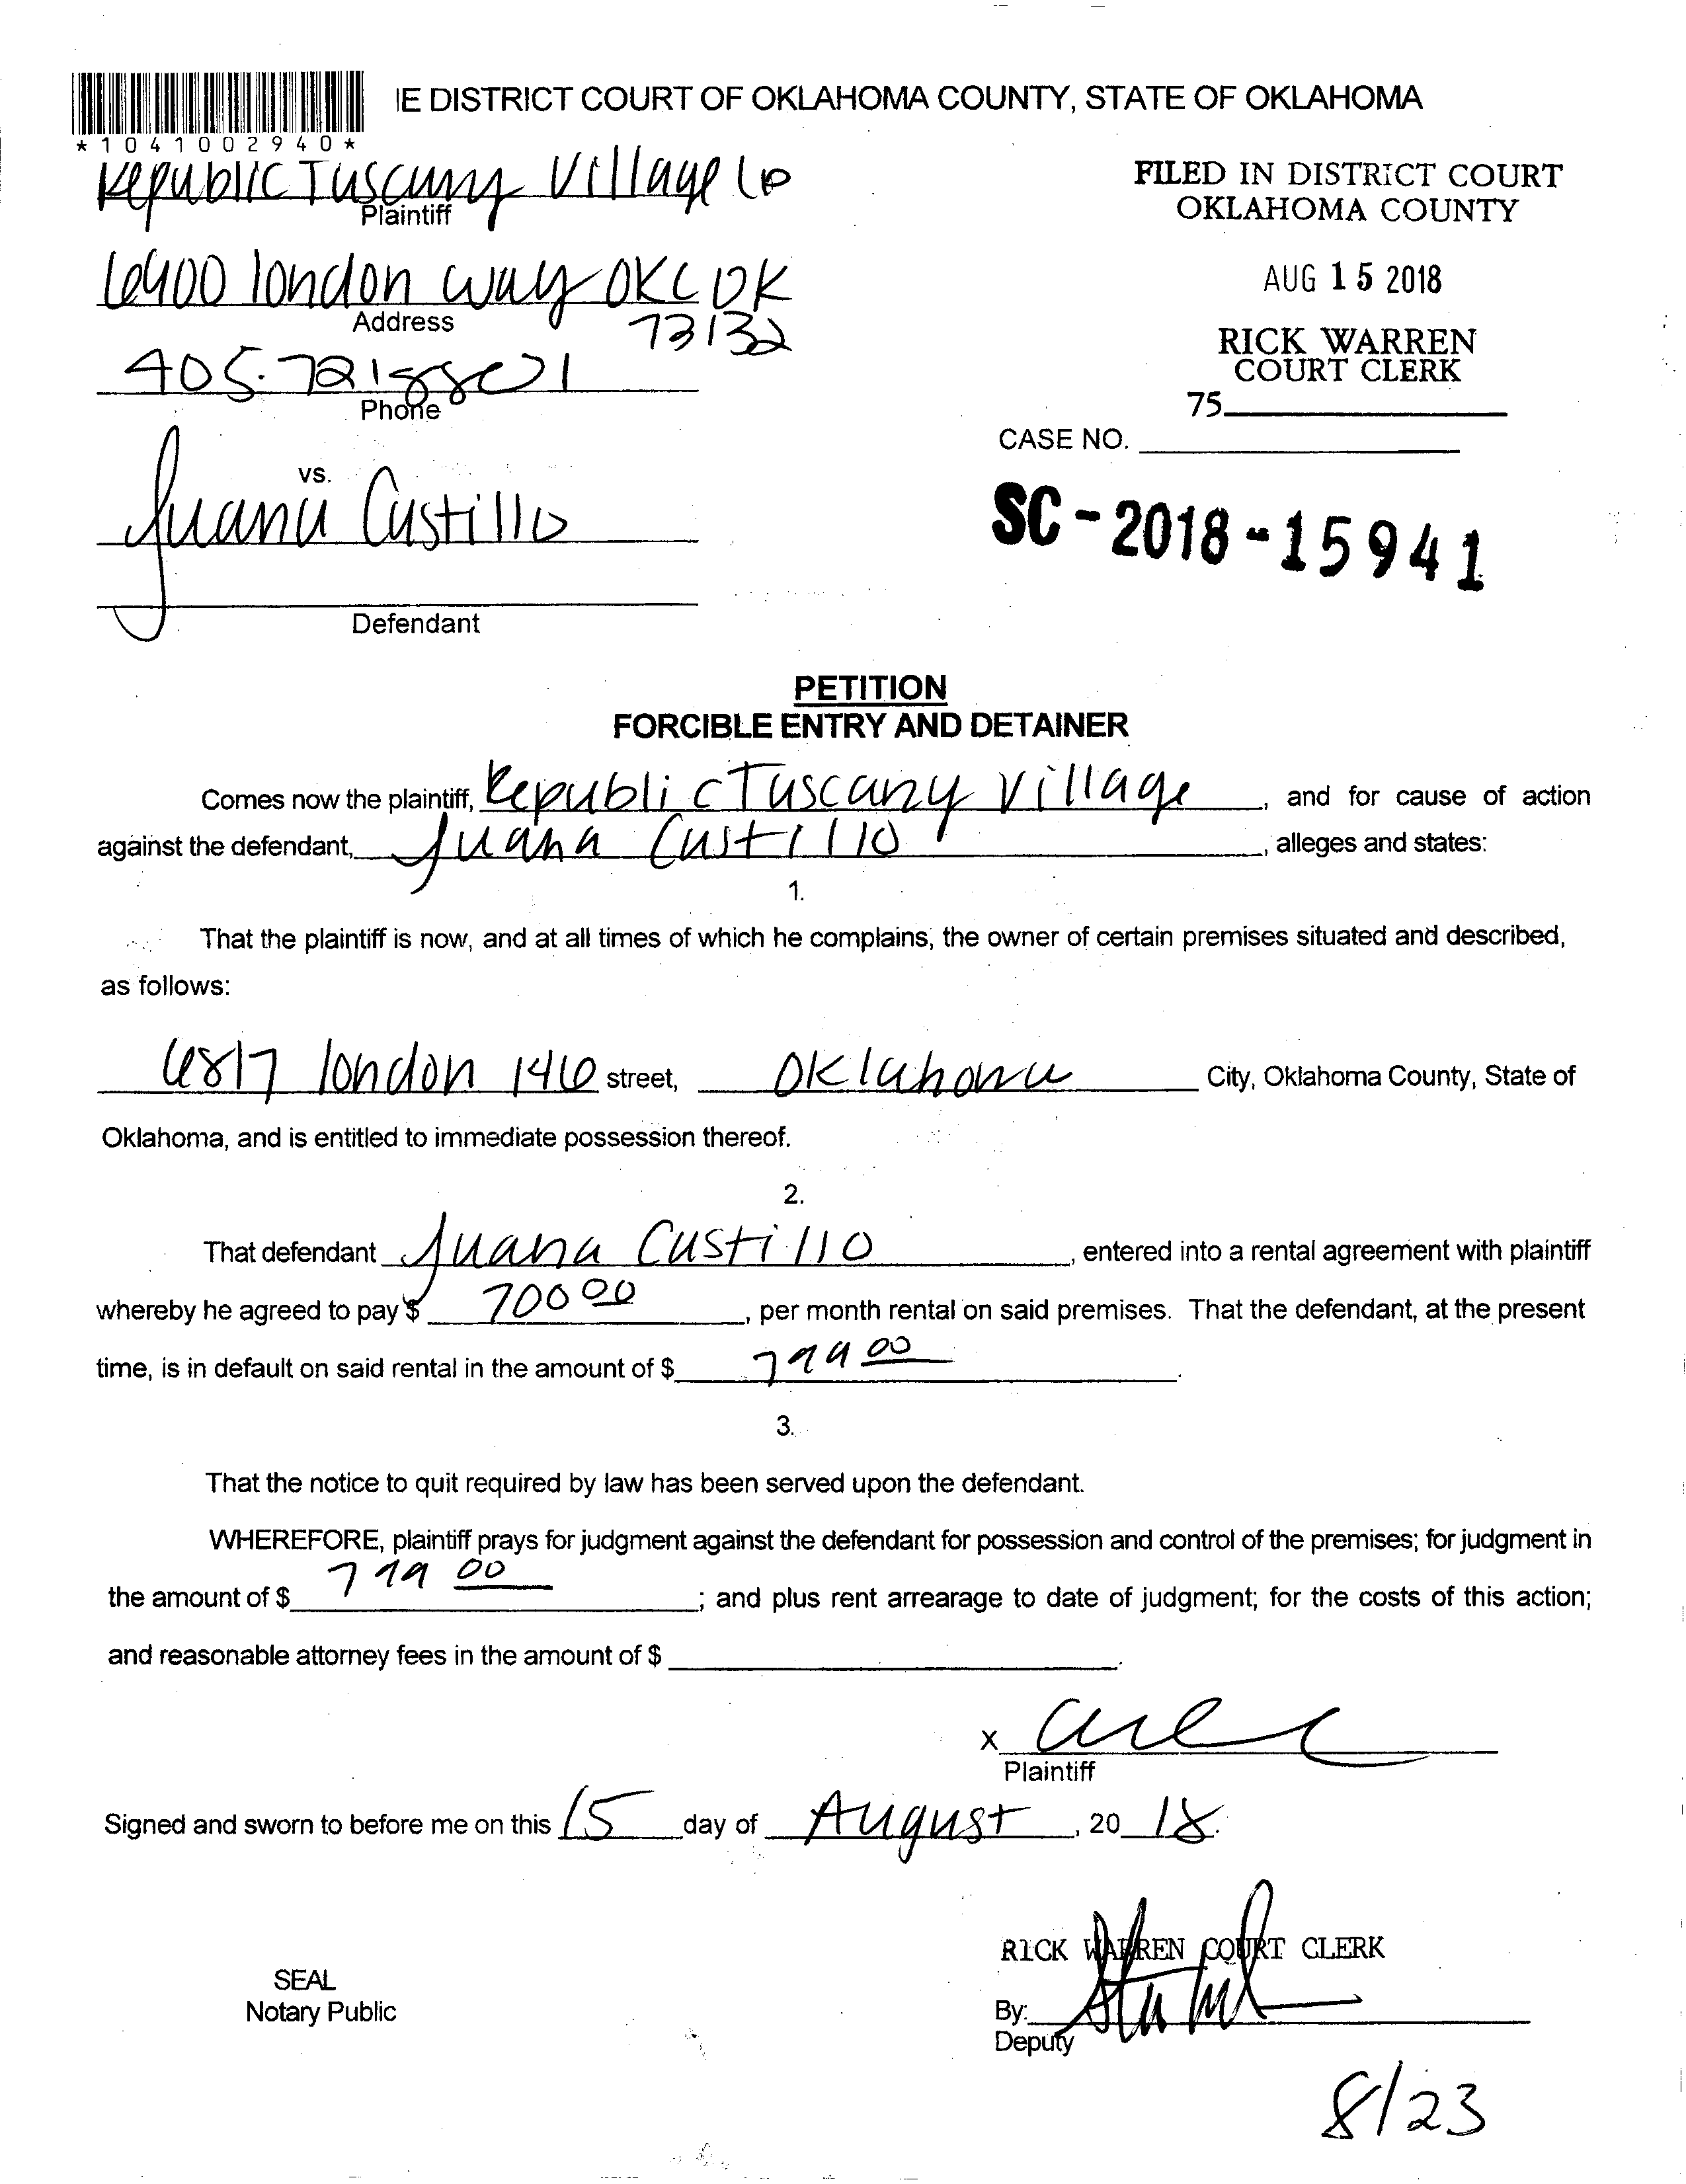 IE DISTRICT COURT OF OKLAHOMA COUNTY, STATE OF OKLAHOMA
*1041002940*
Republic Tuscany Village LP
Plaintiff
FILED IN DISTRICT COURT
OKLAHOMA COUNTY
6900 london way OKC OK
Address
73132
AUG 15 2018
RICK WARREN
COURT CLERK
405.721
Phone
75
CASE NO.
vs.
Juana Castillo
SC-2018-15941
Defendant
PETITION
FORCIBLE ENTRY AND DETAINER
Comes now the plaintiff, Republic Tuscany Village, and for cause of action
against the defendant, Juana Castillo, alleges and states:
1.
That the plaintiff is now, and at all times of which he complains, the owner of certain premises situated and described,
as follows:
6817 london 146 street, Oklahoma City, Oklahoma County, State of
Oklahoma, and is entitled to immediate possession thereof.
2.
That defendant Juana Castillo, entered into a rental agreement with plaintiff
whereby he agreed to pay $ 700 00, per month rental on said premises. That the defendant, at the present
time, is in default on said rental in the amount of $ 799 00.
3.
That the notice to quit required by law has been served upon the defendant.
WHEREFORE, plaintiff prays for judgment against the defendant for possession and control of the premises; for judgment in
the amount of $ 799 00; and plus rent arrearage to date of judgment; for the costs of this action;
and reasonable attorney fees in the amount of $ .
X
Plaintiff
Signed and sworn to before me on this 15 day of August, 20 18.
RICK WARREN COURT CLERK
SEAL
Notary Public
By:
Deputy
8/23